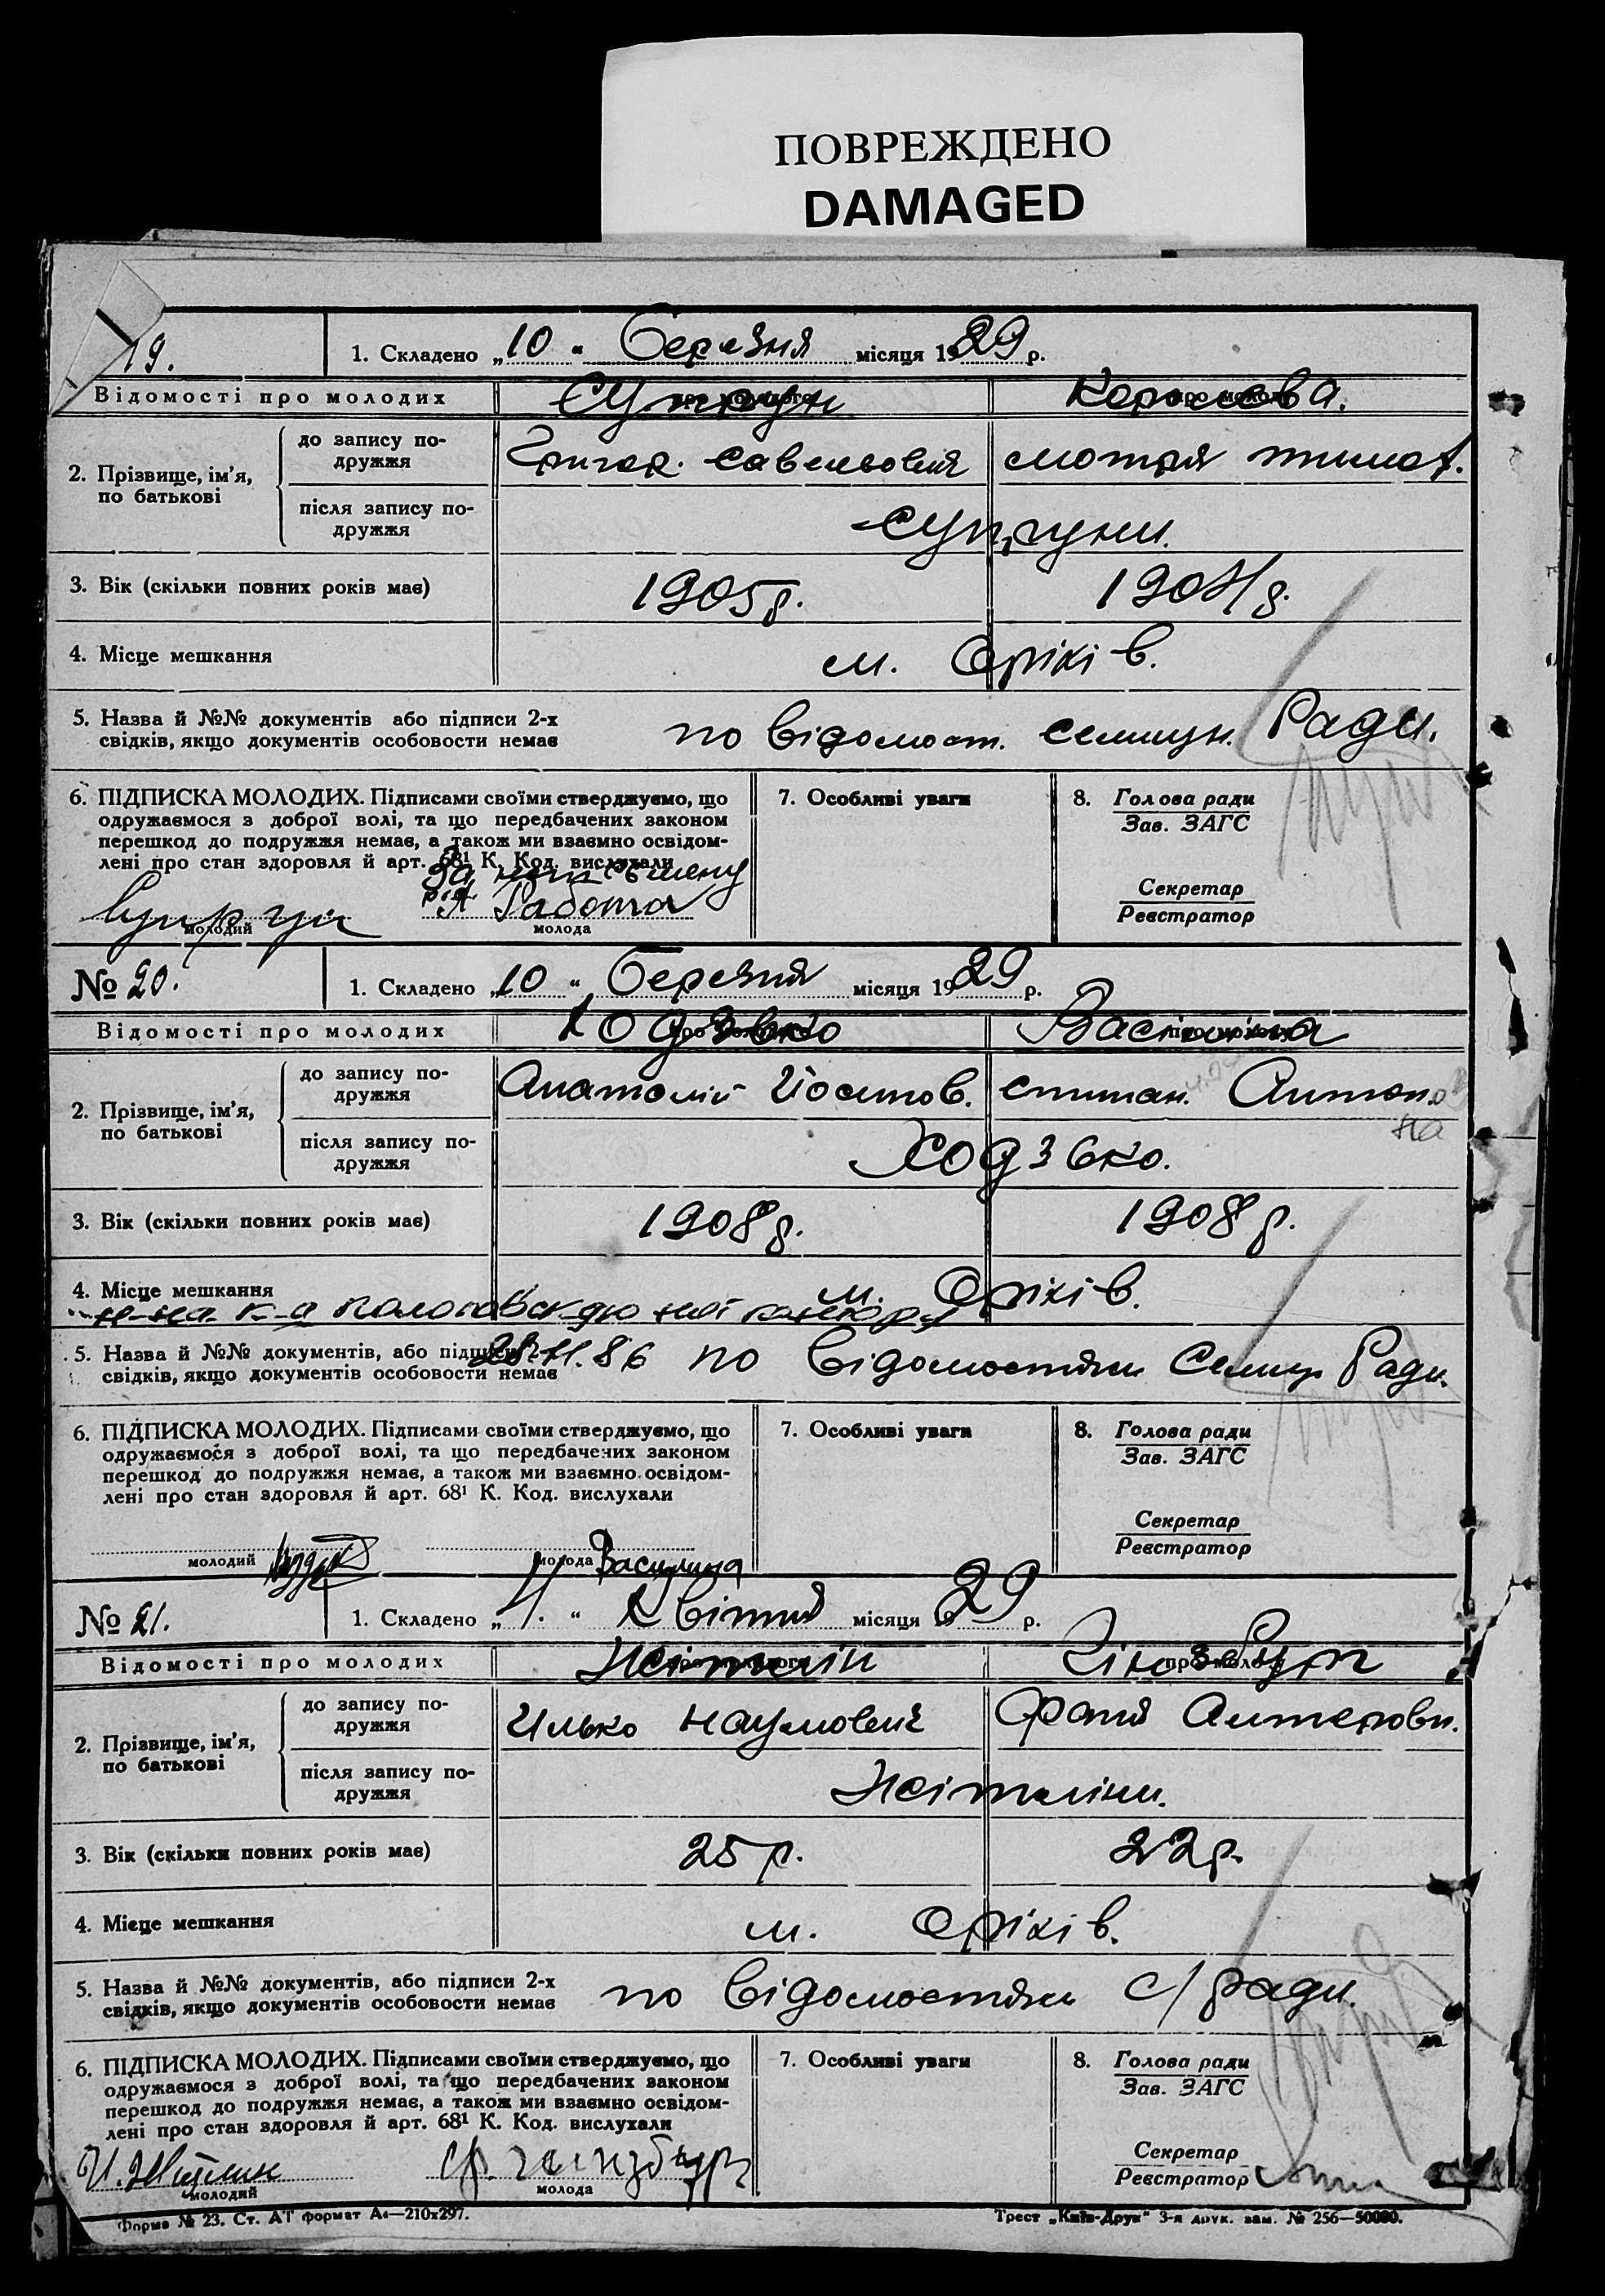 ПОВРЕЖДЕНО
DAMAGED
19. 1. Складено „10“ Березня місяця 1929 р.
Відомості про молодих Супрун Корольова.
2. Прізвище, ім’я, по батькові
до запису подружжя Григор. Савельович Мотря Тимоф.
після запису подружжя Супруни.
3. Вік (скільки повних років має) 1905 р. 1904 р.
4. Місце мешкання м. Оріхів.
5. Назва й №№ документів або підписи 2-х
свідків, якщо документів особовости немає по відомост. селищн. Ради.
6. ПІДПИСКА МОЛОДИХ. Підписами своїми стверджуємо, що 7. Особливі уваги 8. Голова ради
одружаємося з доброї волі, та що передбачених законом Зав. ЗАГС
перешкод до подружжя немає, а також ми взаємно освідом-
лені про стан здоровля й арт. 68¹ К. Код. вислухали
Секретар
Супрун Работа Реєстратор
молодий молода
№ 20. 1. Складено „10“ Березня місяця 1929 р.
Відомості про молодих Ходзько Васініна
2. Прізвище, ім’я, по батькові
до запису подружжя Анатолій Йосипов. Степан. Антон.
на
після запису подружжя Ходзько.
3. Вік (скільки повних років має) 1908 р. 1908 р.
4. Місце мешкання м. Оріхів.
28.11.86
5. Назва й №№ документів, або підписи 2-х
свідків, якщо документів особовости немає по відомостям Селищ Ради.
6. ПІДПИСКА МОЛОДИХ. Підписами своїми стверджуємо, що 7. Особливі уваги 8. Голова ради
одружаємося з доброї волі, та що передбачених законом Зав. ЗАГС
перешкод до подружжя немає, а також ми взаємно освідом-
лені про стан здоровля й арт. 68¹ К. Код. вислухали
Секретар
Реєстратор
молодий молода
№ 21. 1. Складено „1.“ Квітня місяця 1929 р.
Відомості про молодих Житлін Гінзбург
2. Прізвище, ім’я, по батькові
до запису подружжя Илько Наумович Фаня Антеровн.
після запису подружжя Житліни.
3. Вік (скільки повних років має) 25 р. 22 р.
4. Місце мешкання м. Оріхів.
5. Назва й №№ документів, або підписи 2-х
свідків, якщо документів особовости немає по відомостям с/ради.
6. ПІДПИСКА МОЛОДИХ. Підписами своїми стверджуємо, що 7. Особливі уваги 8. Голова ради
одружаємося з доброї волі, та що передбачених законом Зав. ЗАГС
перешкод до подружжя немає, а також ми взаємно освідом-
лені про стан здоровля й арт. 68¹ К. Код. вислухали
Секретар
И. Житлин Ф. Гинзбург Реєстратор
молодий молода
Форма № 23. Ст. АТ формат А₄—210х297. Трест „Київ-Друк“ 3-я друк. зам. № 256—50000.